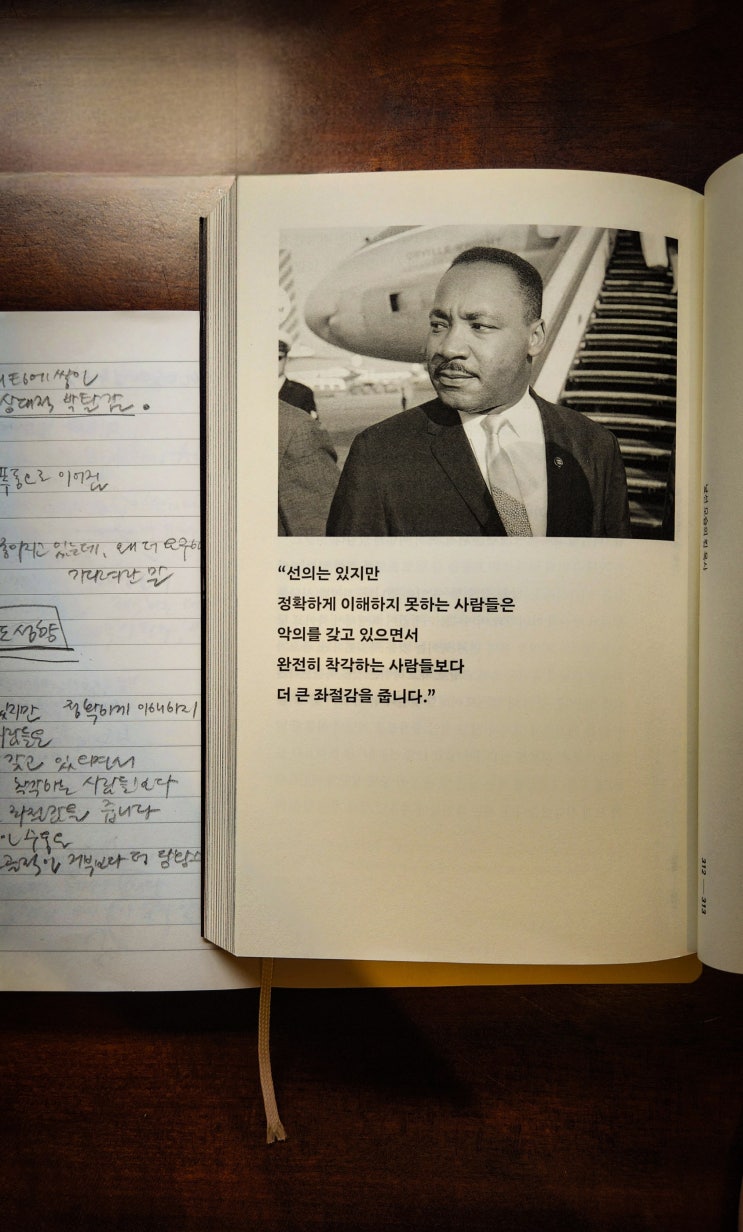 상대적 박탈감.
폭동으로 이어짐
있는데, 왜 더
기다려란 말
정확하게 이해하지
갖고 있으면서
착각하는 사람들보다
좌절감을 줍니다
거부보다 더
“선의는 있지만
정확하게 이해하지 못하는 사람들은
악의를 갖고 있으면서
완전히 착각하는 사람들보다
더 큰 좌절감을 줍니다.”
312 — 313